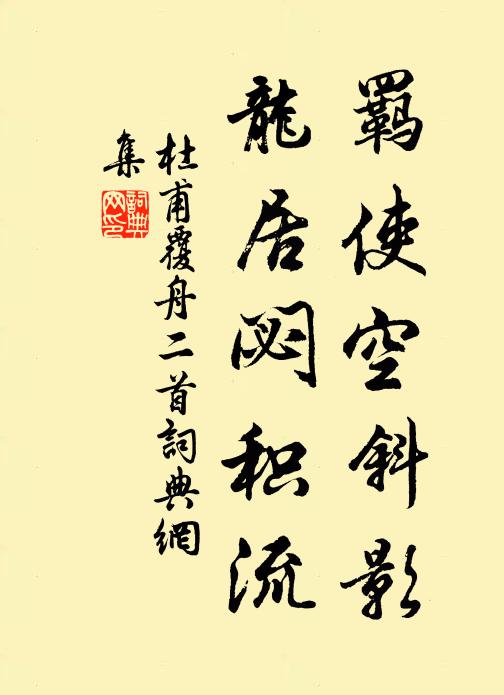 羈使空斜影
龍居閟积流
杜甫覆舟二首詞典網
集
詞典網印